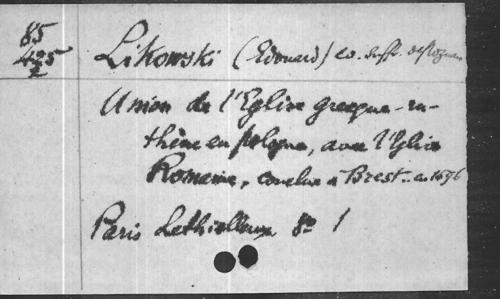 85
425
2
Likowski (Edouard) ev. suff. de Posnan
Union de l'Eglise grecque-ru-
thène en Pologne, avec l'Eglise
Romaine, conclue a Brest - en 1596
Paris Lethielleux 8° 1